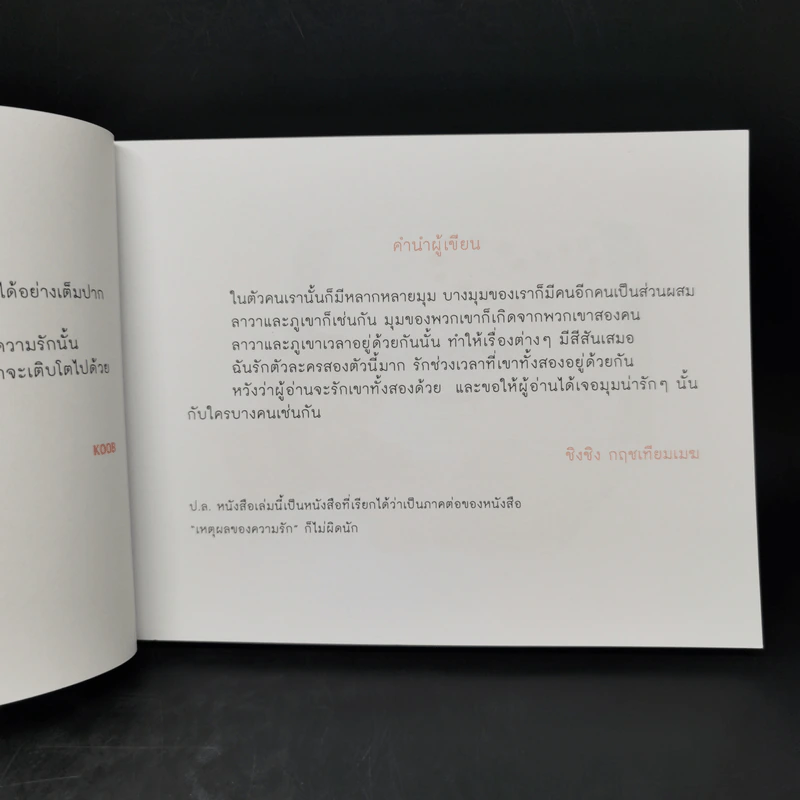 ได้อย่างเต็มปาก
ความรักนั้น
จะเติบโตไปด้วย
KOOB
คำนำผู้เขียน
ในตัวคนเรานั้นก็มีหลากหลายมุม บางมุมของเราก็มีคนอีกคนเป็นส่วนผสม
ลาวาและภูเขาก็เช่นกัน มุมของพวกเขาก็เกิดจากพวกเขาสองคน
ลาวาและภูเขาเวลาอยู่ด้วยกันนั้น ทำให้เรื่องต่างๆ มีสีสันเสมอ
ฉันรักตัวละครสองตัวนี้มาก รักช่วงเวลาที่เขาทั้งสองอยู่ด้วยกัน
หวังว่าผู้อ่านจะรักเขาทั้งสองด้วย และขอให้ผู้อ่านได้เจอมุมน่ารักๆ นั้น
กับใครบางคนเช่นกัน
ชิงชิง กฤชเทียมเมฆ
ป.ล. หนังสือเล่มนี้เป็นหนังสือที่เรียกได้ว่าเป็นภาคต่อของหนังสือ
"เหตุผลของความรัก" ก็ไม่ผิดนัก